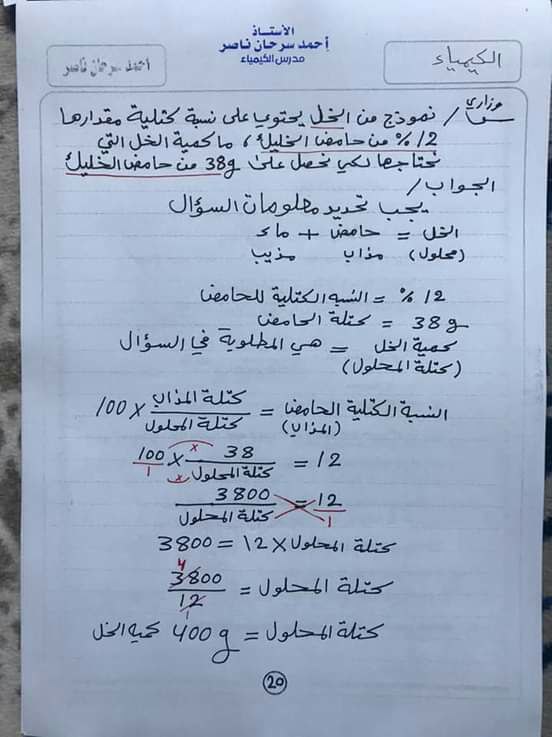 الأستاذ
أحمد سرحان ناصر
مدرس الكيمياء
الكيمياء
أحمد سرحان ناصر
وزاري
س / نموذج من الخل يحتوي على نسبة كتلية مقدارها
12 % من حامض الخليك ، ما كمية الخل التي
نحتاجها لكي نحصل على 38g من حامض الخليك
الجواب /
يجب تحديد معلومات السؤال
الخل = حامض + ماء
(محلول) مذاب مذيب
12 % = النسبه الكتلية للحامض
38g = كتلة الحامض
كمية الخل = هي المطلوبة في السؤال
(كتلة المحلول)
النسبة الكتلية الحامض = كتلة المذاب / كتلة المحلول × 100
(المذاب)
12 = 38 / كتلة المحلول × 100 / 1
12 / 1 = 3800 / كتلة المحلول
كتلة المحلول × 12 = 3800
كتلة المحلول = 3800 / 12
4
1
كتلة المحلول = 400 g كمية الخل
20